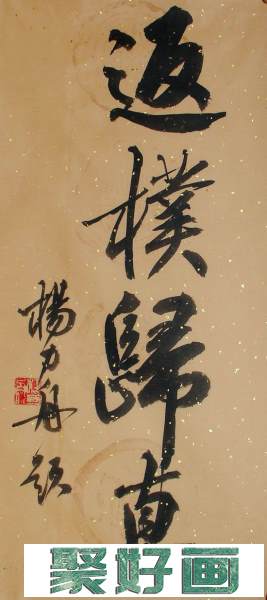 返樸歸真
楊力舟題
聚好画